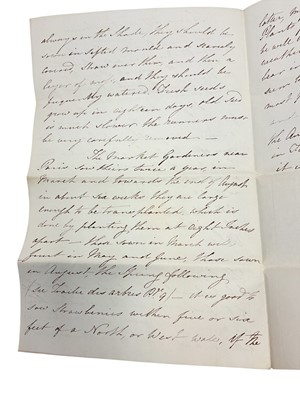 always in the Shade, they should be
sown in sifted mould and scarcely
covered, straw over them, and then a
layer of and they should be
frequently watered. Fresh Seeds
grow up in eighteen days, old Seed
is much slower. the runners must
be very carefully removed —
The Market Gardeners near
Paris sow theirs twice a year, in
March and towards the end of August,
in about six weeks they are large
enough to be transplanted, which is
done by planting them at eight inches
apart — those sown in March will
fruit in May and June, those sown
in August, the Spring following
(See Traité des arbres — it is good to
sow Strawberries within five or six
feet of a North, or West wall, if the
later, m
Plants
be well
weather
bear in
the
most
and
the